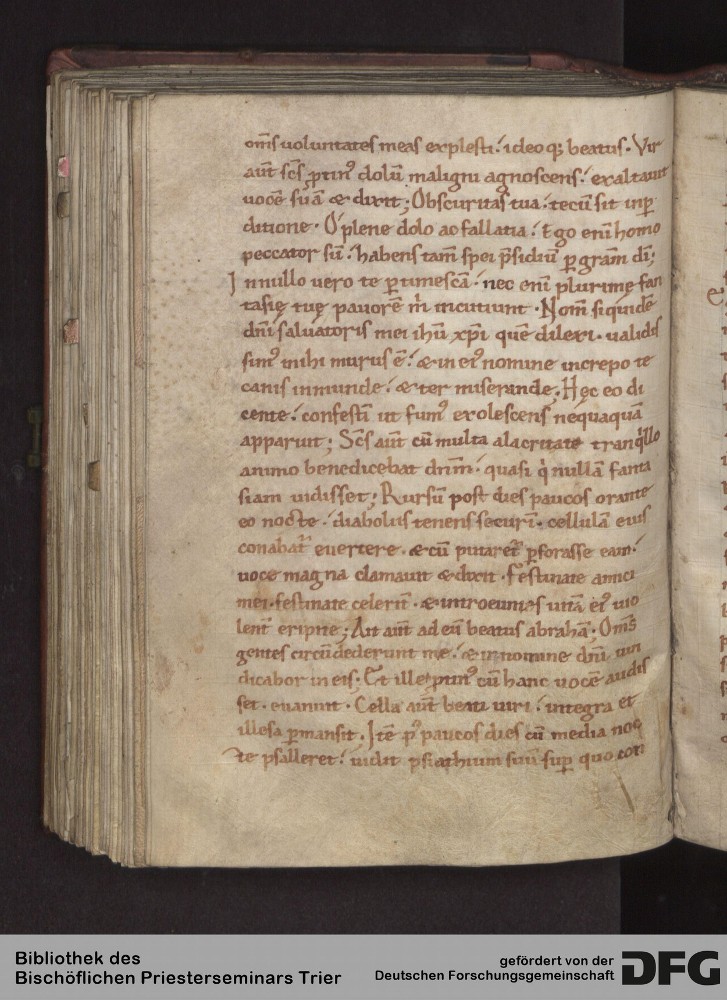 om̄s uoluntates meas explesti! ideoq; beatus. Vir
aūt sc̄s p̱tin᷒ dolū maligni agnoscens! exaltauit
uocē suā & dixit; Obscuritas tua! tecū sit inp̱
ditione. O plene dolo ac fallatia! Ego eni̅ homo
peccator su̅! habens tam̄ spei p̄sidiū p̱ gram̄ dī;
In nullo uero te p̱timescā. nec eni̅ plurimę fan
tasię tuę pauorē m̄ incutiunt. Nom̄ siquidē
dn̄i saluatoris mei ihū xp̄i quē dilexi. ualidis
sim᷒ mihi murus ē! & in ei᷒ nomine increpo te
canis inmunde! & ter miserande; Hęc eo di
cente! confesti̅ ut fum᷒ exolescens nequaquā
apparuit; Sc̄s aūt cū multa alacritate tranq̓llo
animo benedicebat dnm̄! quasi q̓ nullā fanta
siam uidisset; Rursū post dies paucos orante
eo nocte! diabolus tenens securi̅. cellulā eius
conabat᷑ euertere. & cū putaret᷑ p̱forasse eam!
uoce magna clamauit & dixit. Festinate amici
mei. festinate celerit̄. & introeuntes uitā ei᷒ uio
lent̄ eripite; Ait aūt ad eū beatus abrahā; Om̄s
gentes circūdederunt me! & in nomine dn̄i uin
dicabor in eis; Et ille p̱tin᷒ cū hanc uocē audis
set. euanuit. Cella aūt beati uiri! integra et
illesa p̱mansit. Itē p᷒ paucos dies cū media noc
te psalleret! uidit psiathium suū sup̱ quo
Bibliothek des
Bischöflichen Priesterseminars Trier
gefördert von der
Deutschen Forschungsgemeinschaft
DFG